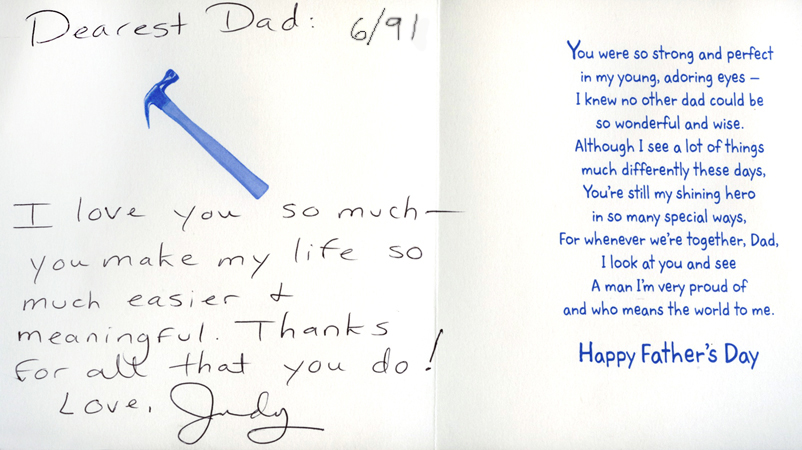 Dearest Dad: 6/91
I love you so much—
you make my life so
much easier &
meaningful. Thanks
for all that you do!
Love, Judy
You were so strong and perfect
in my young, adoring eyes –
I knew no other dad could be
so wonderful and wise.
Although I see a lot of things
much differently these days,
You're still my shining hero
in so many special ways,
For whenever we're together, Dad,
I look at you and see
A man I'm very proud of
and who means the world to me.
Happy Father's Day